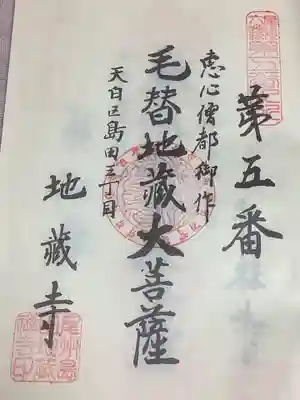 第五番
恵心僧都御作
毛替地藏大菩薩
天白区島田三丁目
地藏寺